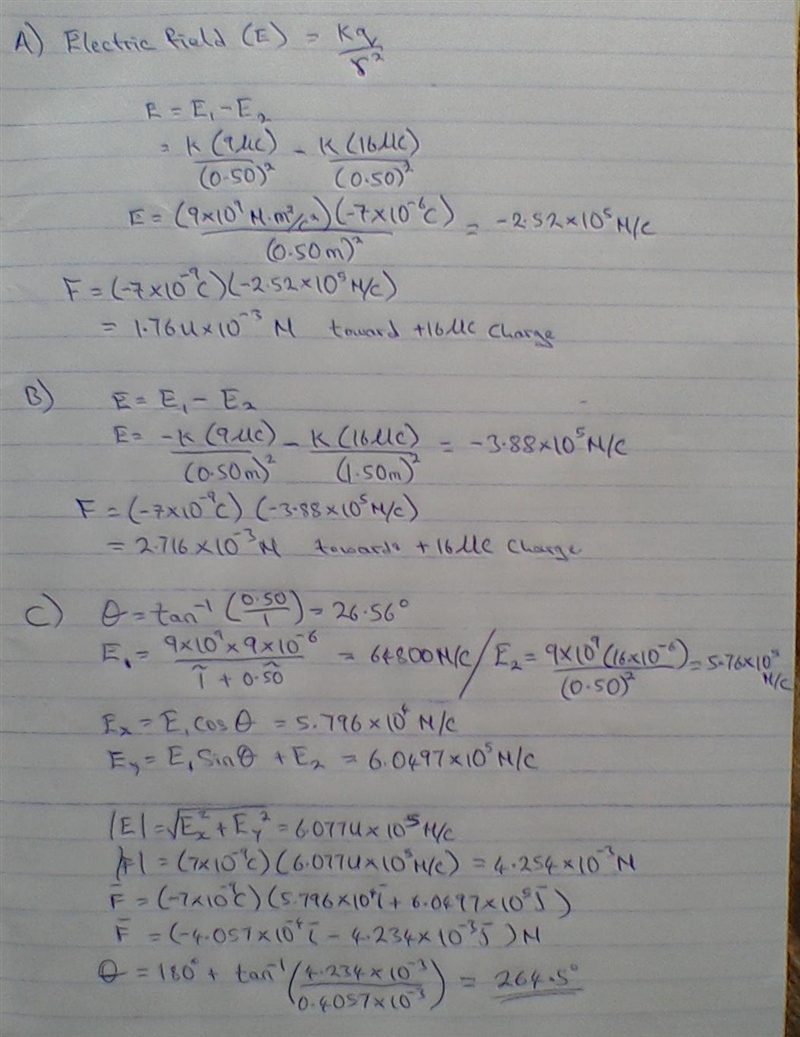 A) Electric field (E) = Kq/r²
E = E₁ - E₂
= K (9μC)/(0.50)² - K (16μC)/(0.50)²
E = (9×10⁹ N.m²/c²)(-7×10⁻⁶C)/(0.50m)² = -2.52×10⁵ N/C
F = (-7×10⁻⁹C)(-2.52×10⁵ N/C)
= 1.764×10⁻³ N toward +16μC Charge
B) E = E₁ - E₂
E = -K (9μC)/(0.50m)² - K (16μC)/(1.50m)² = -3.88×10⁵ N/C
F = (-7×10⁻⁹C) (-3.88×10⁵ N/C)
= 2.716×10⁻³ N towards +16μC Charge
C) θ = tan⁻¹ (0.50/1) = 26.56°
E₁ = 9×10⁹ × 9×10⁻⁶/1² + 0.50² = 64800 N/C / E₂ = 9×10⁹ (16×10⁻⁶)/(0.50)² = 5.76×10⁵ N/C
Eₓ = E₁ cos θ = 5.796×10⁴ N/C
Eᵧ = E₁ Sin θ + E₂ = 6.0497×10⁵ N/C
|E| = √Eₓ² + Eᵧ² = 6.0774×10⁵ N/C
|F| = (7×10⁻⁹C) (6.0774×10⁵ N/C) = 4.254×10⁻³ N
F̄ = (-7×10⁻⁹C) (5.796×10⁴ī + 6.0497×10⁵j̄)
F̄ = (-4.057×10⁻⁴ī - 4.234×10⁻³j̄) N
θ = 180° + tan⁻¹ (4.234×10⁻³/0.4057×10⁻³) = 264.5°